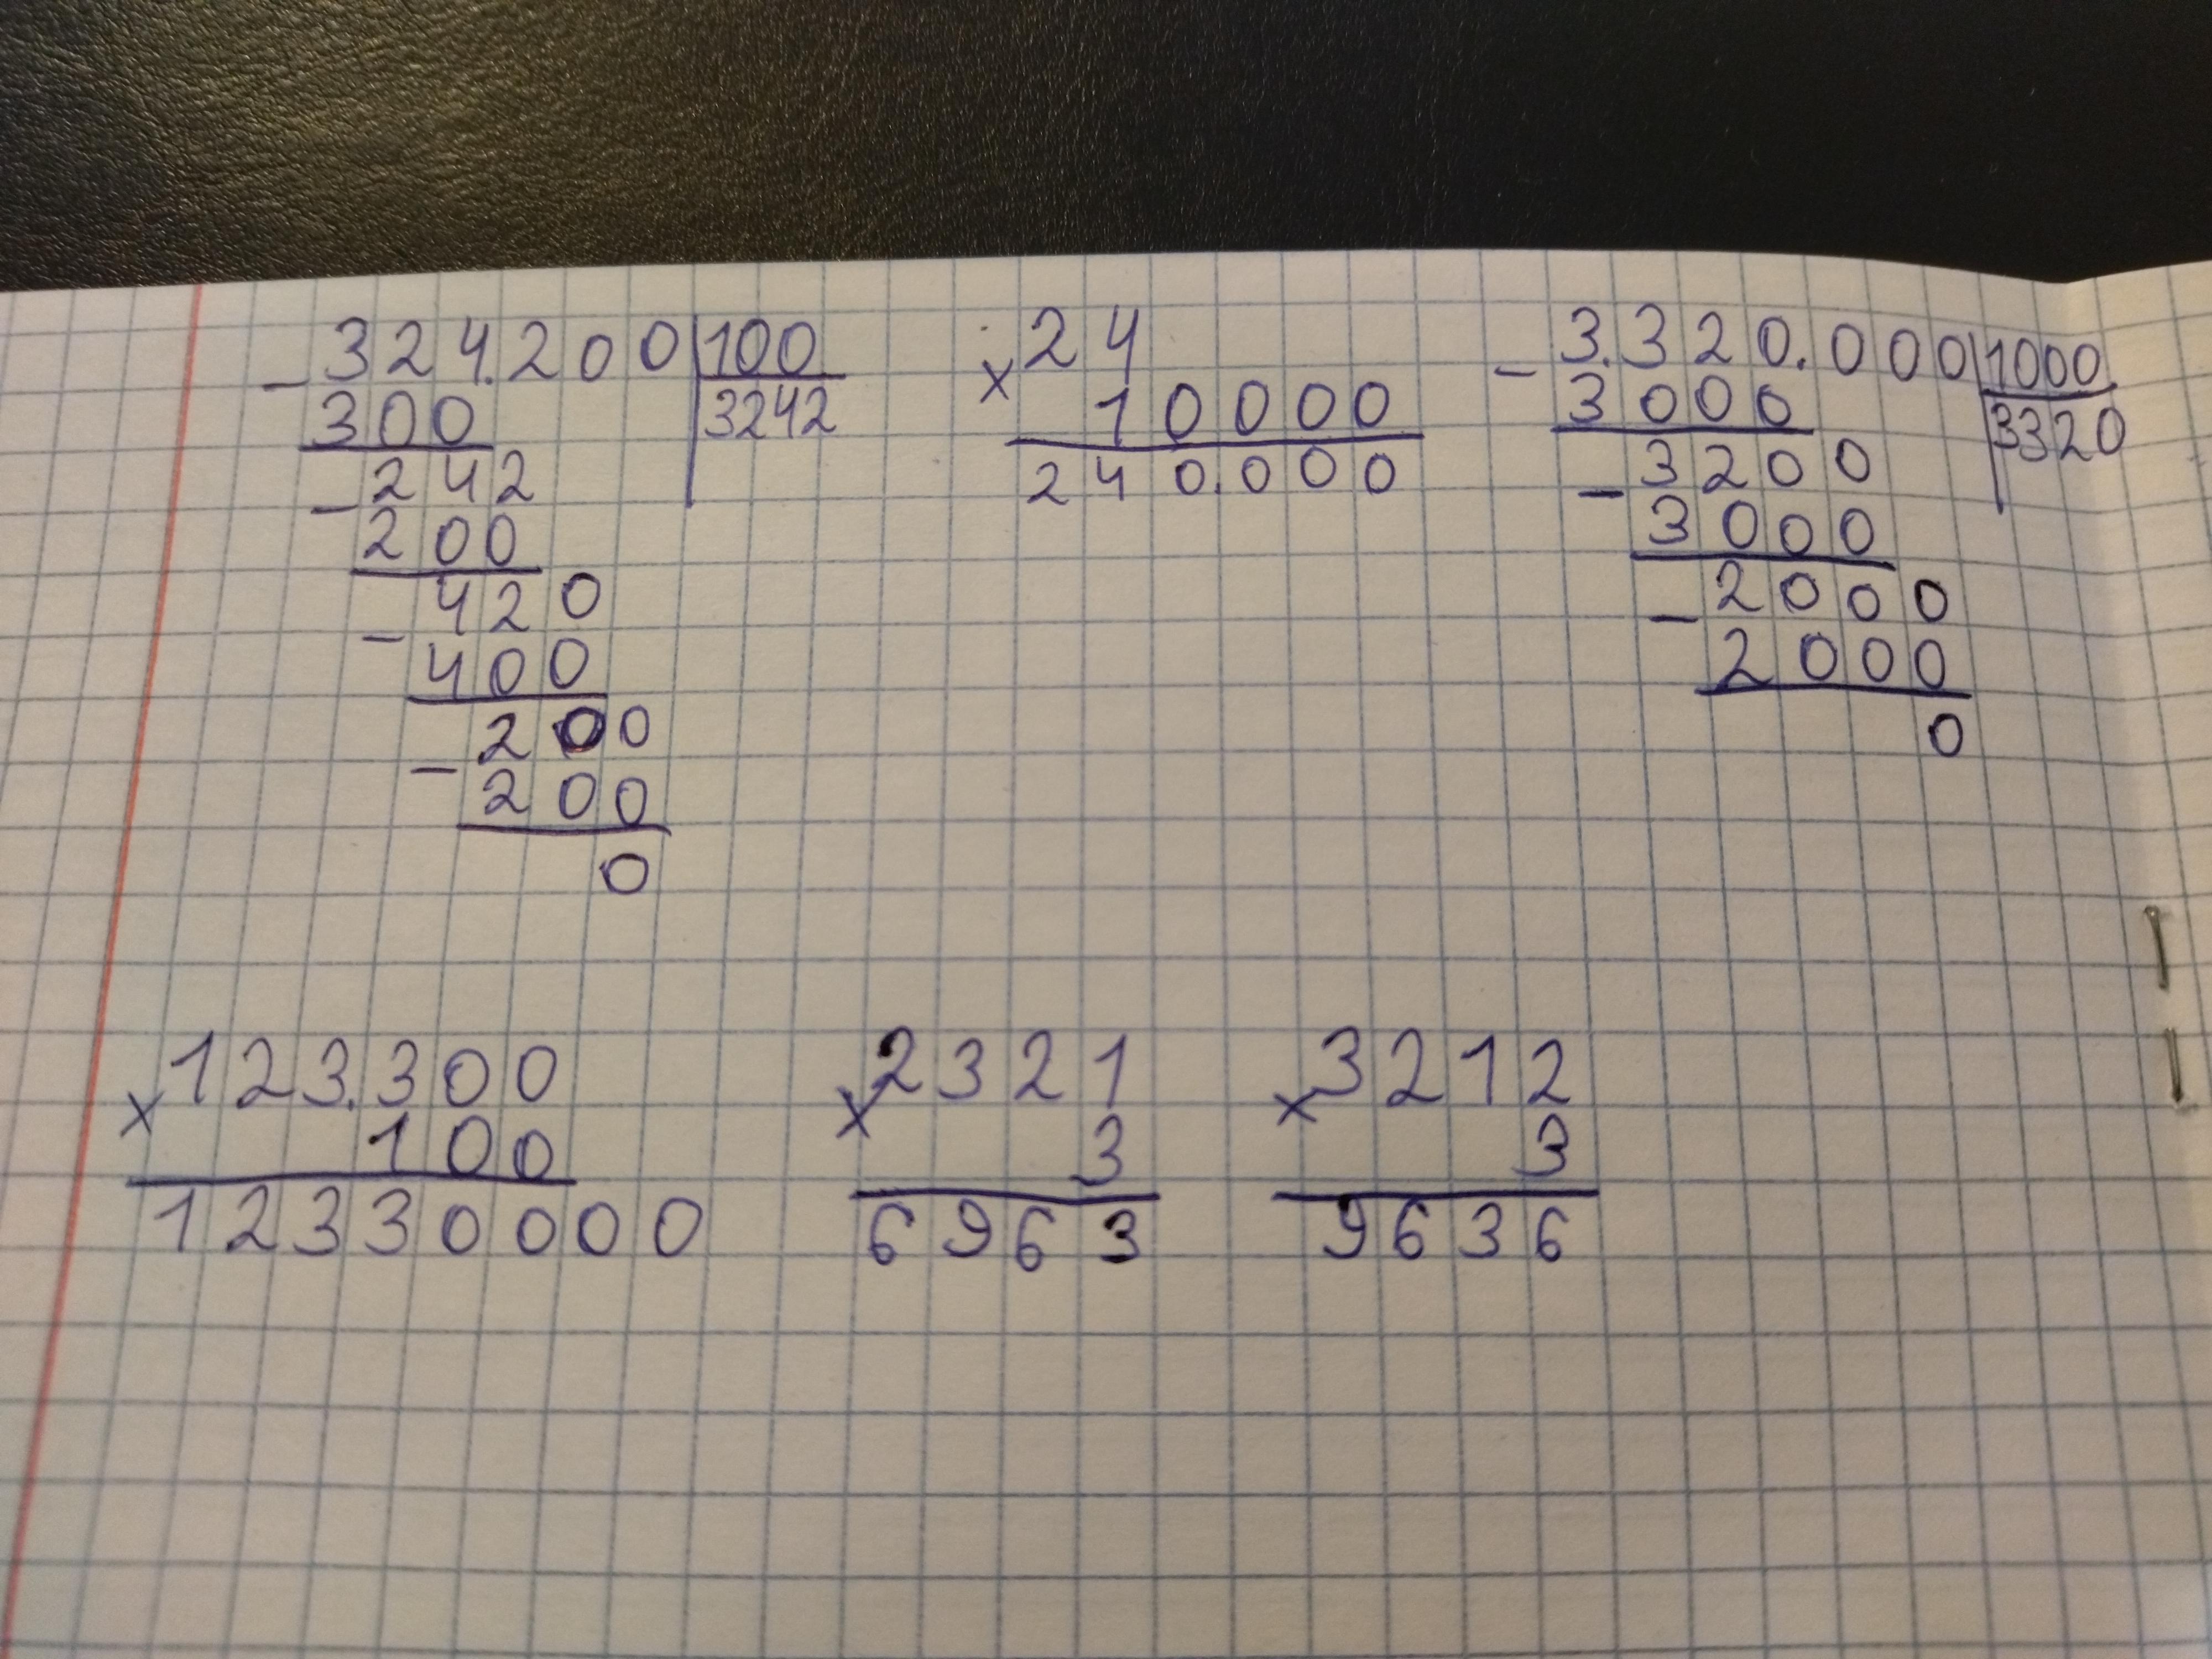 324.200 100
300 3242
- 242
200
- 420
400
- 200
200
0
24
x 10000
240.000
- 3.320.000 1000
3000 3320
- 3200
3000
- 2000
2000
0
123.300
x 100
12330000
2321
x 3
6963
3212
x 3
9636